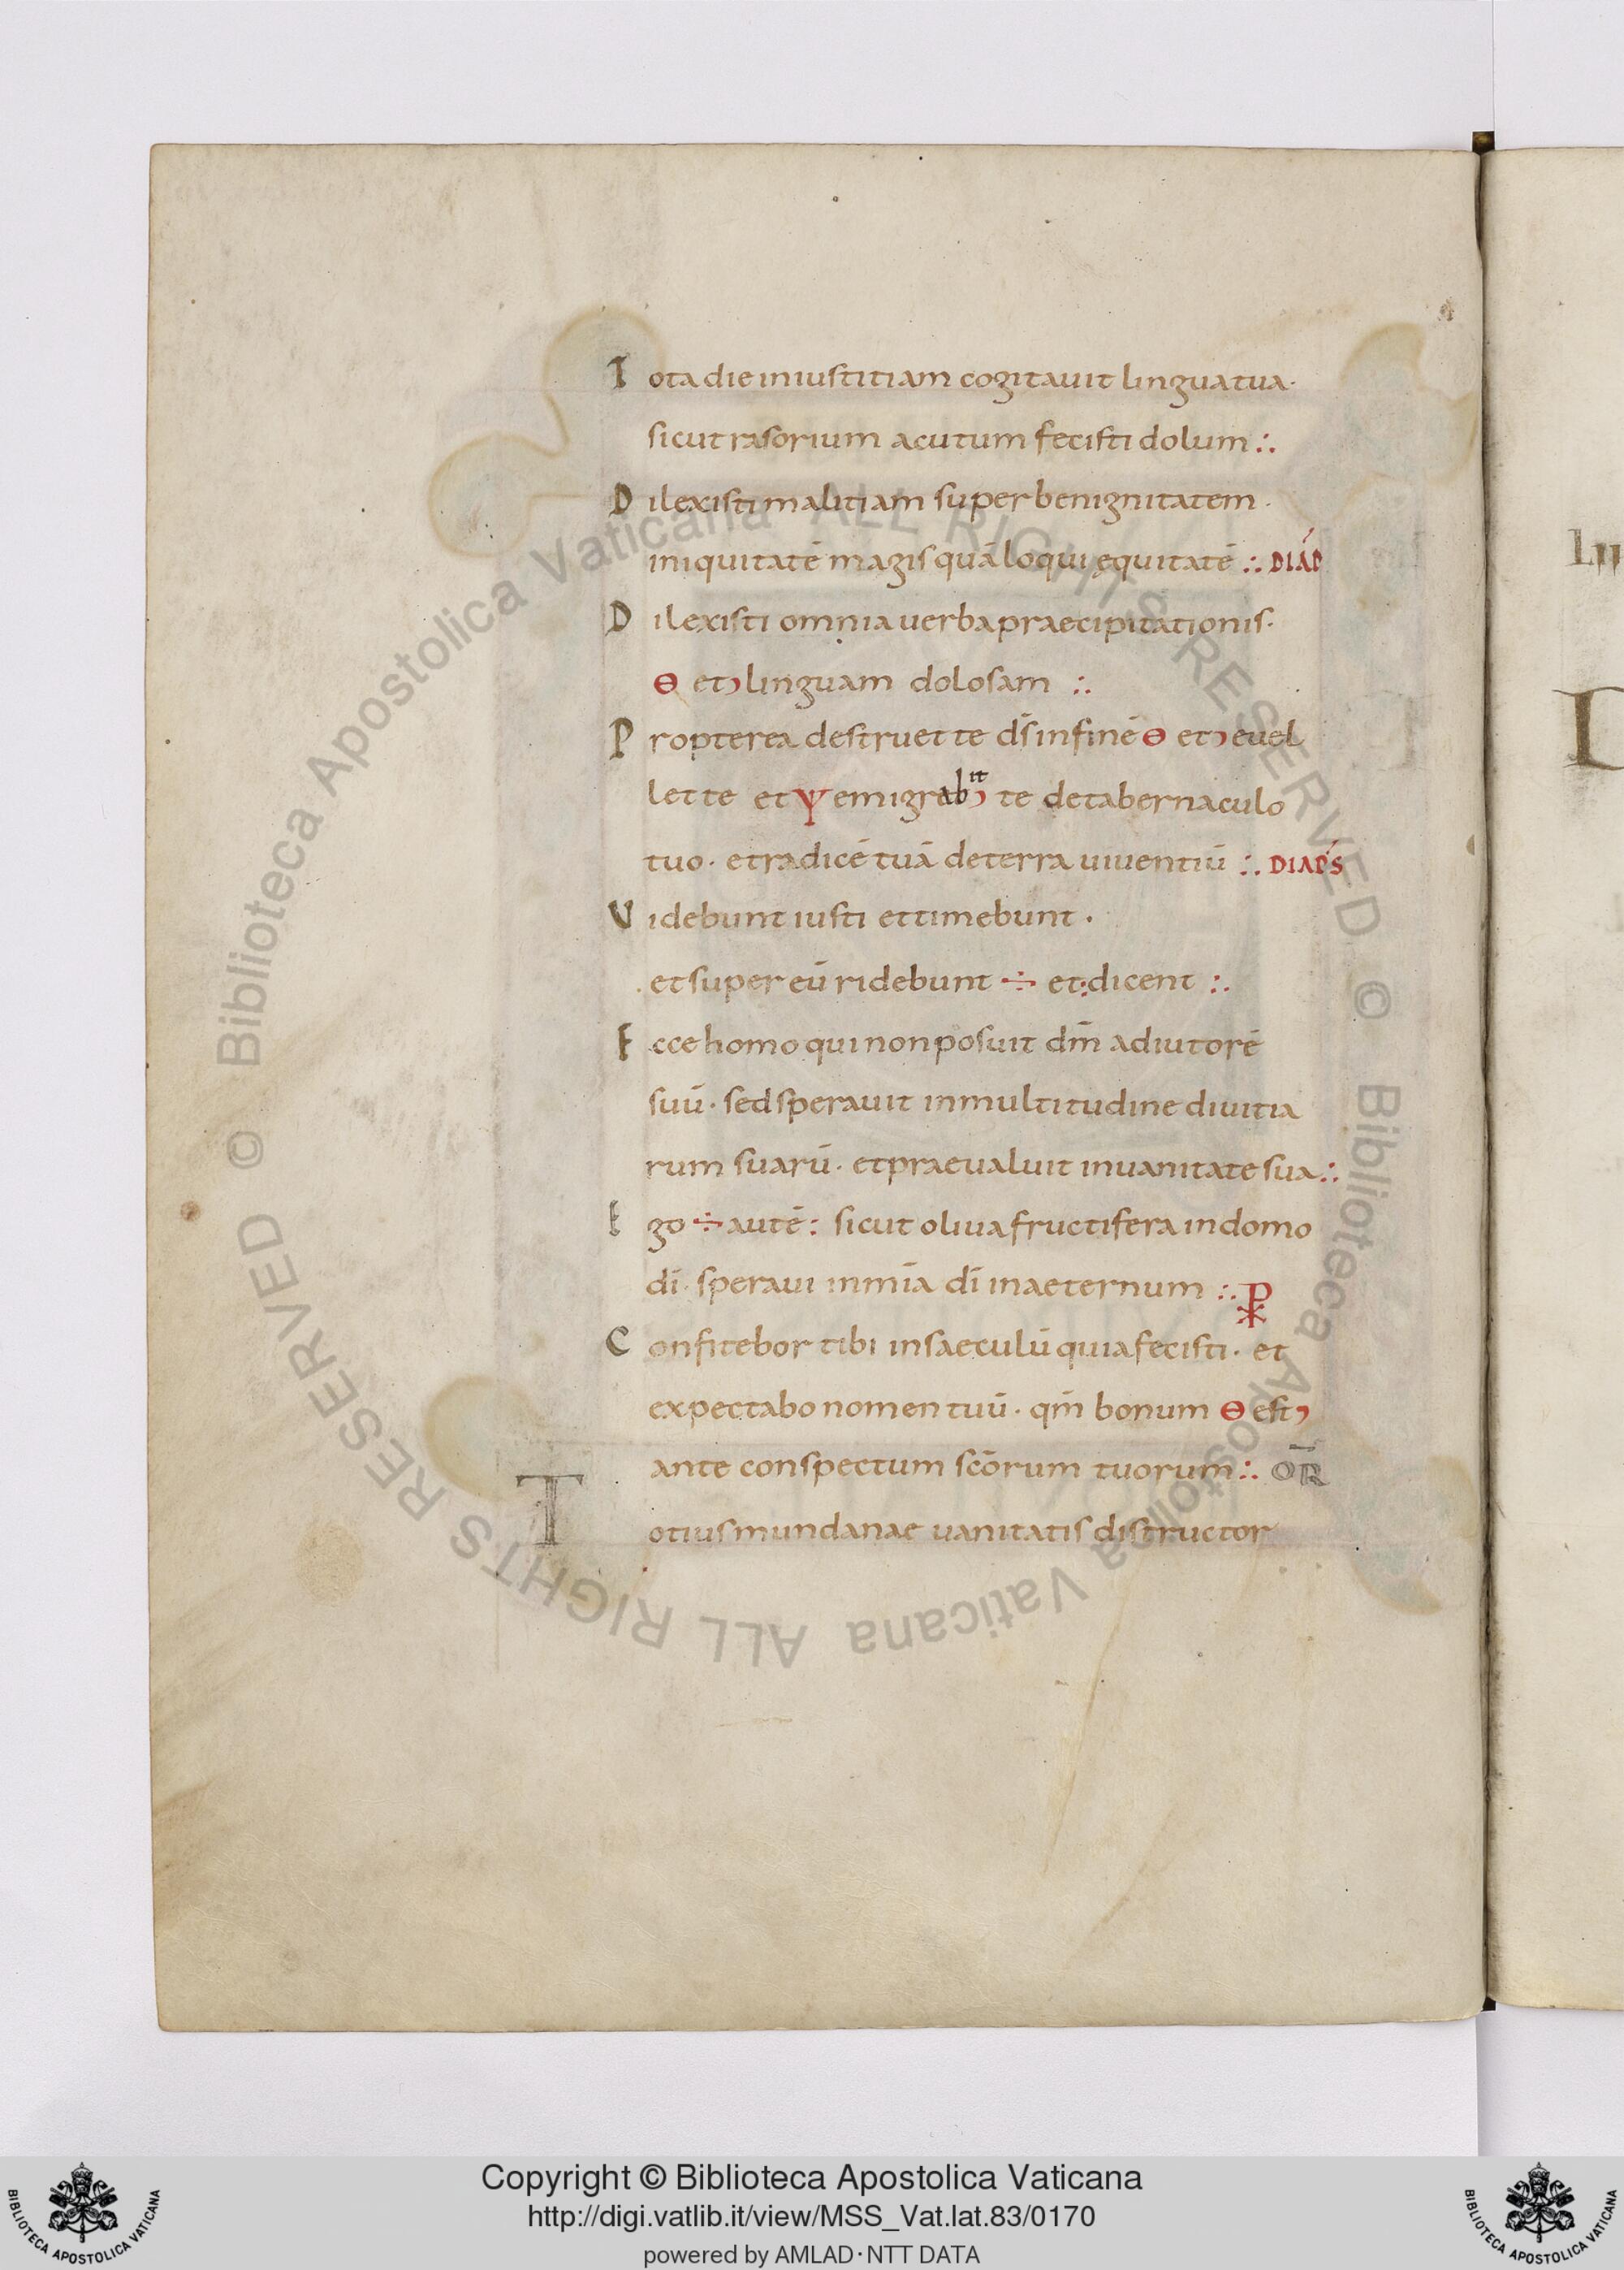 Tota die iniustitiam cogitauit lingua tua·
sicut rasorium acutum fecisti dolum :.
Dilexisti malitiam super benignitatem ·
iniquitatē magis quā loqui ęquitatē :. DIÁP
Dilexisti omnia uerba praecipitationis·
Θ et, linguam dolosam :.
Propterea destruet te ds̄ in finē Θ et, euel
let te et Ψ emigrabit, te de tabernaculo
tuo · et radicē tuā de terra uiuentiū :. DIAPS
Uidebunt iusti et timebunt ·
et super eū ridebunt ÷ et: dicent :.
Ecce homo qui non posuit dm̄ adiutorē
suū · sed sperauit in multitudine diuitia
rum suarū · et praeualuit in uanitate sua :.
Ego ÷ autē : sicut oliua fructifera in domo
dī · speraui in mīa dī in aeternum :. ⳩
Confitebor tibi in saeculū quia fecisti · et
expectabo nomen tuū · qm̄ bonum Θ est,
ante conspectum scōrum tuorum :. OR̄
Totius mundanae uanitatis distructor
Copyright © Biblioteca Apostolica Vaticana
http://digi.vatlib.it/view/MSS_Vat.lat.83/0170
powered by AMLAD·NTT DATA
BIBLIOTECA APOSTOLICA VATICANA
BIBLIOTECA APOSTOLICA VATICANA
© Biblioteca Apostolica Vaticana ALL RIGHTS RESERVED © Biblioteca Apostolica Vaticana ALL RIGHTS RESERVED